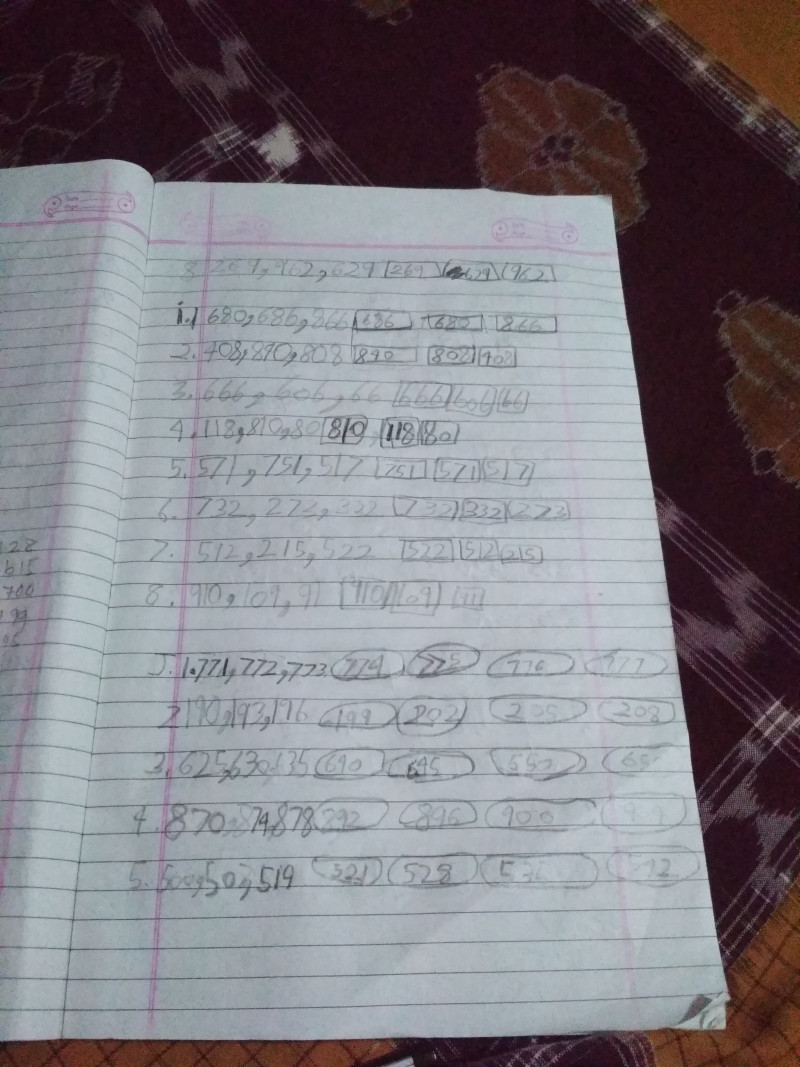 8. 269, 962, 629 269 629 962
i. 1 680, 686, 866 686 680 866
2. 708, 890, 808 890 808 708
3. 666, 606, 66 666 606 66
4. 118, 810, 80 810, 118 80
5. 571, 751, 517 751 571 517
6. 732, 272, 322 732 332 223
7. 512, 215, 522 522 512 215
8. 910, 109, 91 910 109
J. 1. 771, 772, 773 774 775 776 777
2 190, 193, 196 199 202 205 208
3. 625, 630, 635 640 645 550
4. 870, 874, 878 292 896 900
5. 519 521 528
128
615
700
99